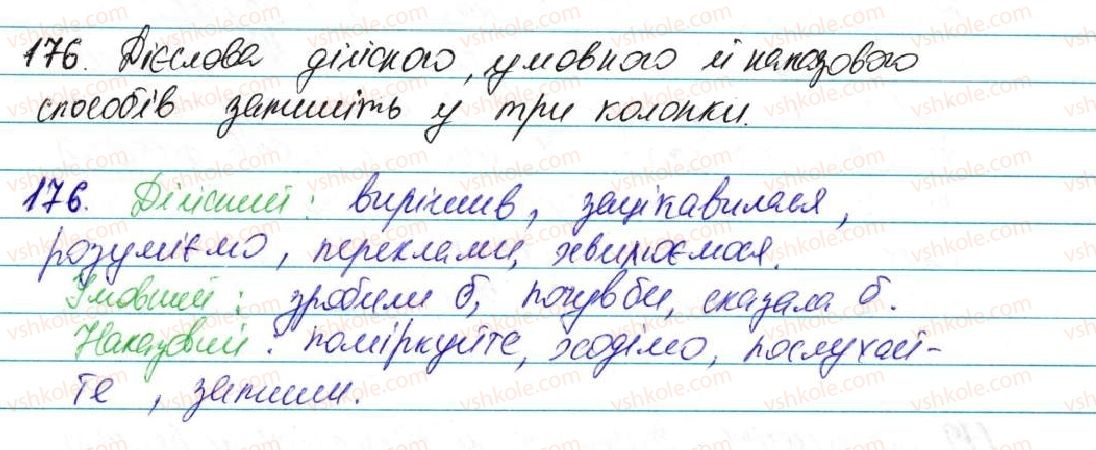 176. Дієслова дійсного, умовного й наказового
способів запишіть у три колонки.
176. Дійсний: вирішив, зацікавилася,
розуміємо, переклали, хвилюємося.
Умовний: зробили б, почув би, сказала б.
Наказовий: поміркуйте, ходімо, послухай-
те, запиши.